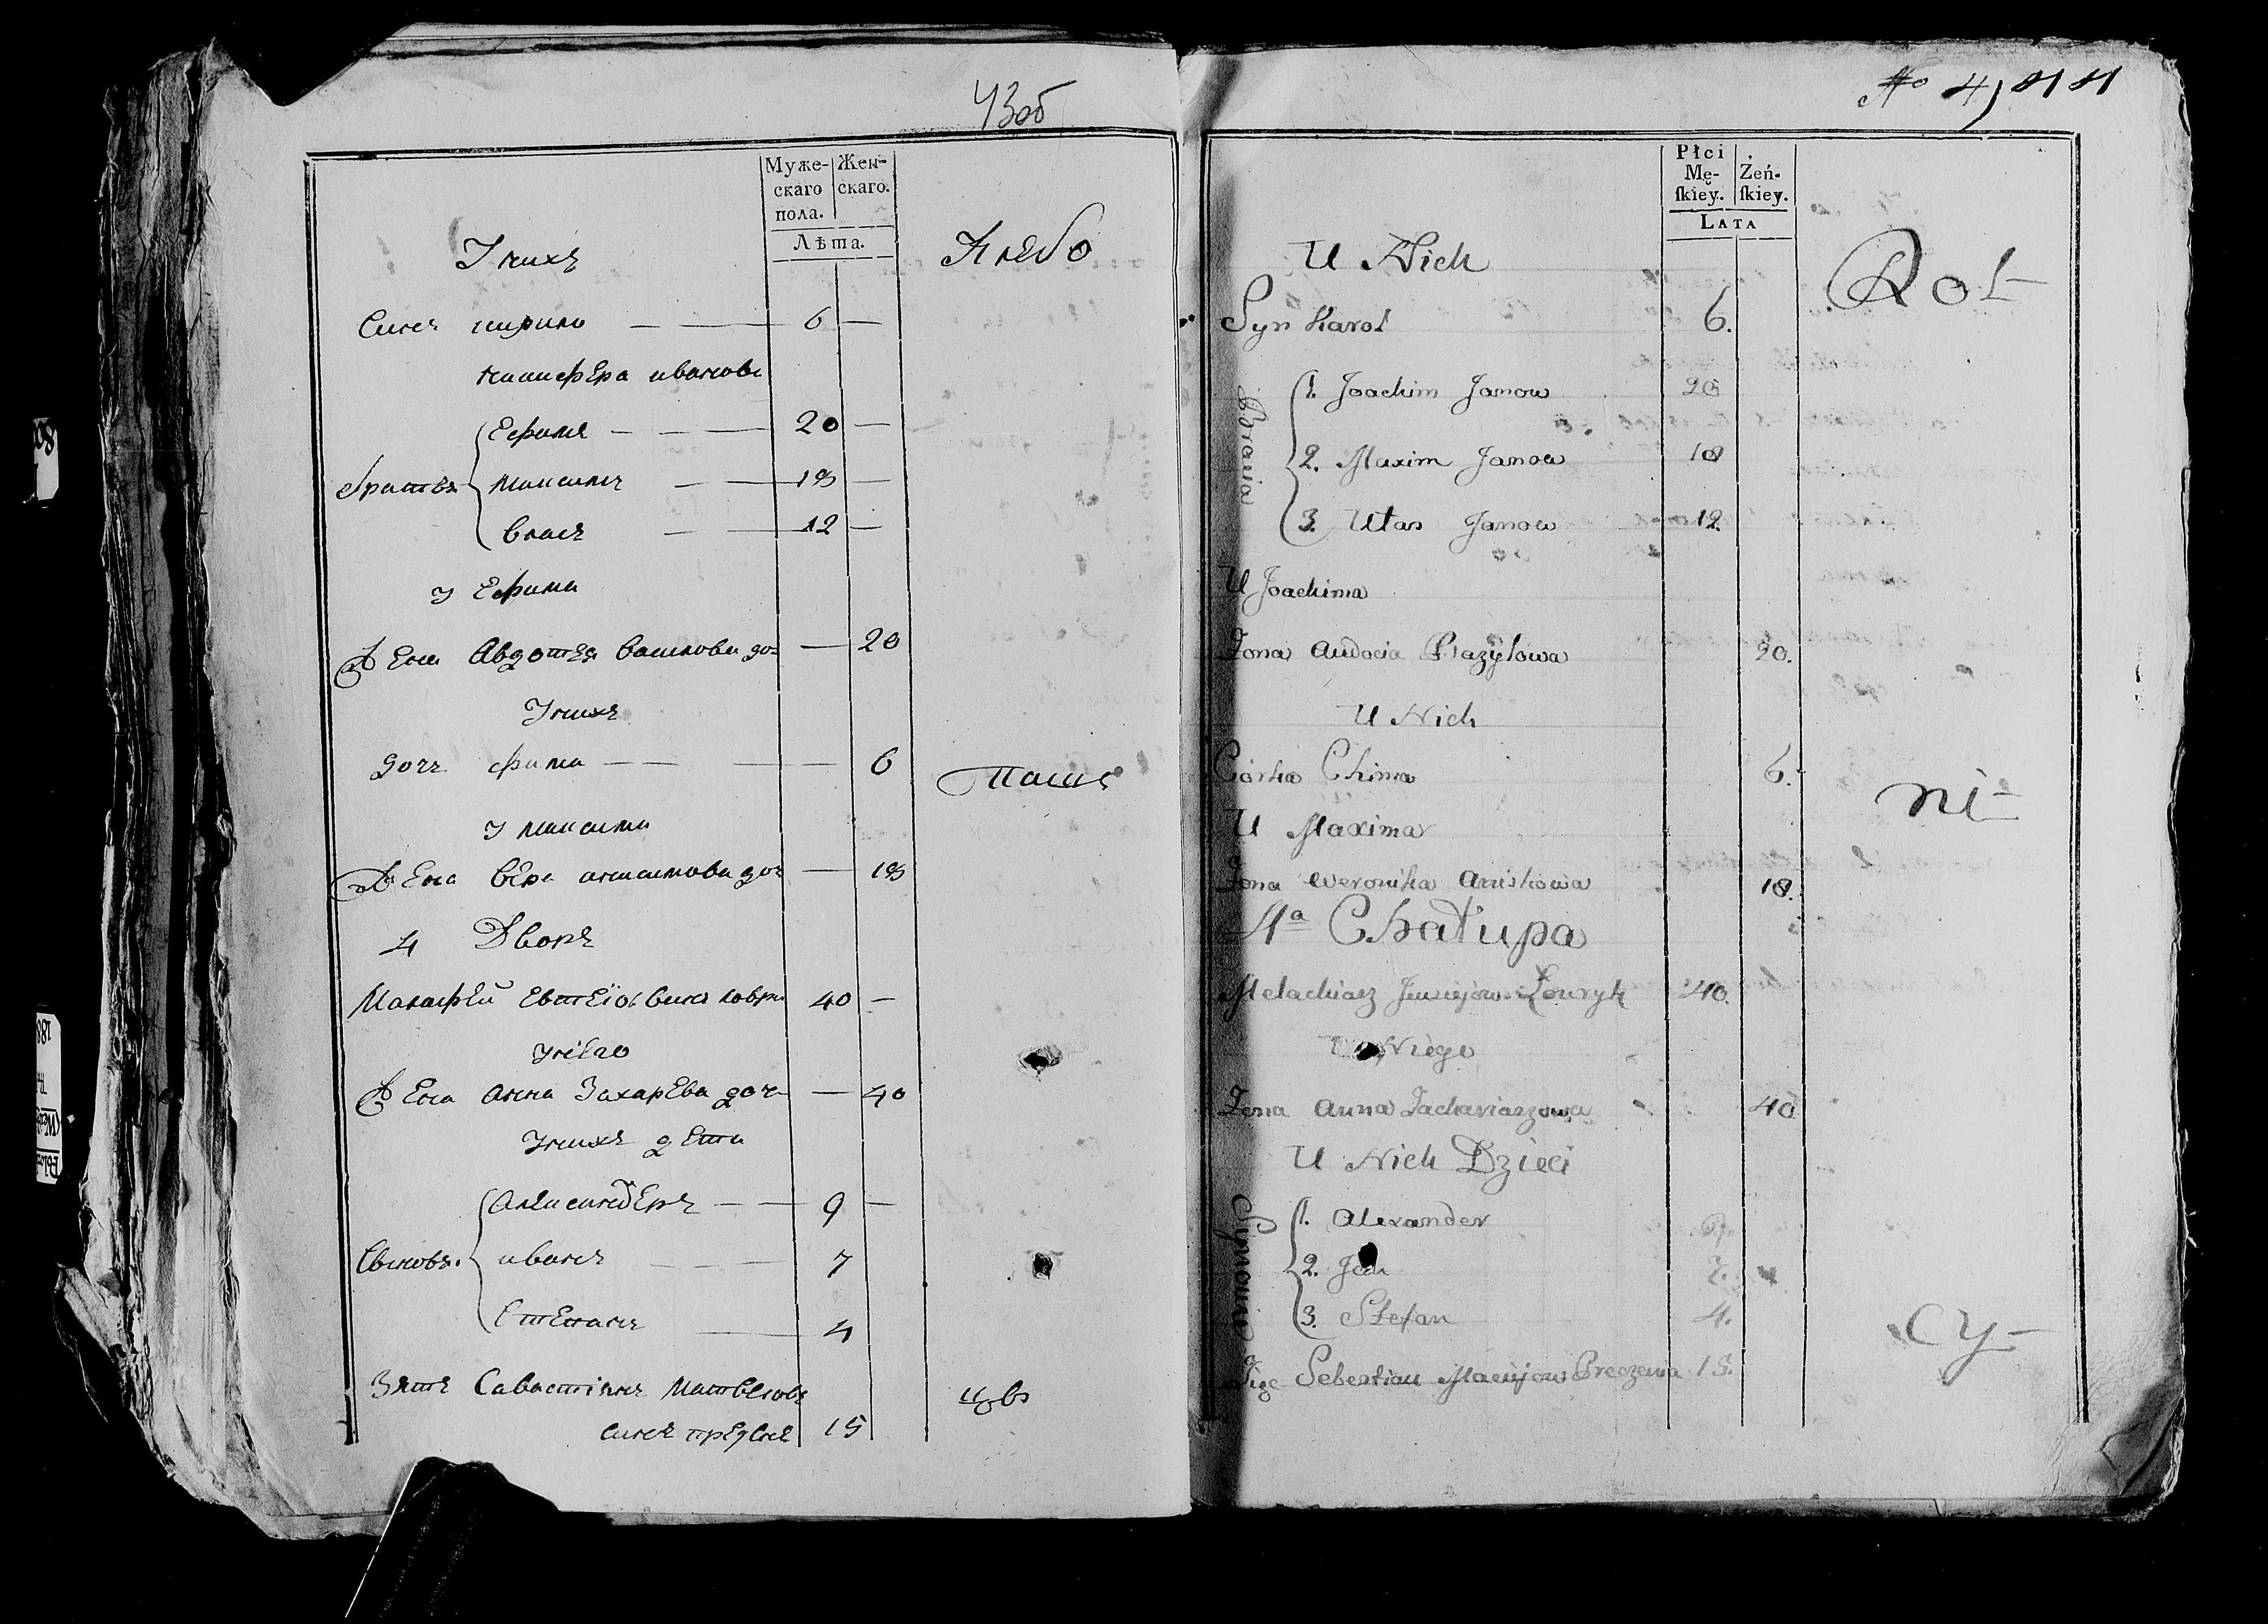 43об
Муже-
скаго
пола.
Жен-
скаго.
Лѣта.
Унихъ
Хлебо
Синъ кирило — — 6 —
никифера иванова
братья
Ефимъ — — — 20 —
максимъ — — 18 —
Власъ — — 12 —
у Ефима
Жена Авдотея василова доч — 20
Унихъ
дочь фима — — — 6
паше
у максима
Жена вера анисимова доч — 18
4 Дворъ
Малафей Евтеіов синъ 40 —
унего
Жена анна Захарева доч — 40
Унихъ дети
Сыновя.
Александеръ — — 9 —
иванъ — — — 7
Степанъ — 4
Зять Савастіянъ Матвеювъ
синъ 15
цов
No 4,
Płci
Mę-
skiey.
Żeń-
skiey.
LATA
U Nich
Rol-
Syn Karol 6.
Bracia
1. Joachim Janow 20
2. Maxim Janow 18
3. Ułas Janow 12.
U Joachima
Żona Audocia Bazylowa 20.
U Nich
Córka Chima 6.
ni-
U Maxima
Żona Weronika Aniskowa 18.
4a Chałupa
Melachiasz Ławryk 40.
U Niego
Żona Anna Zachariaszowa 40
U Nich Dzieci
Synowie
1. Alexander 9.
2. Jan 7.
3. Stefan 4.
cy-
Zięć Sebestian Maciejow 15.